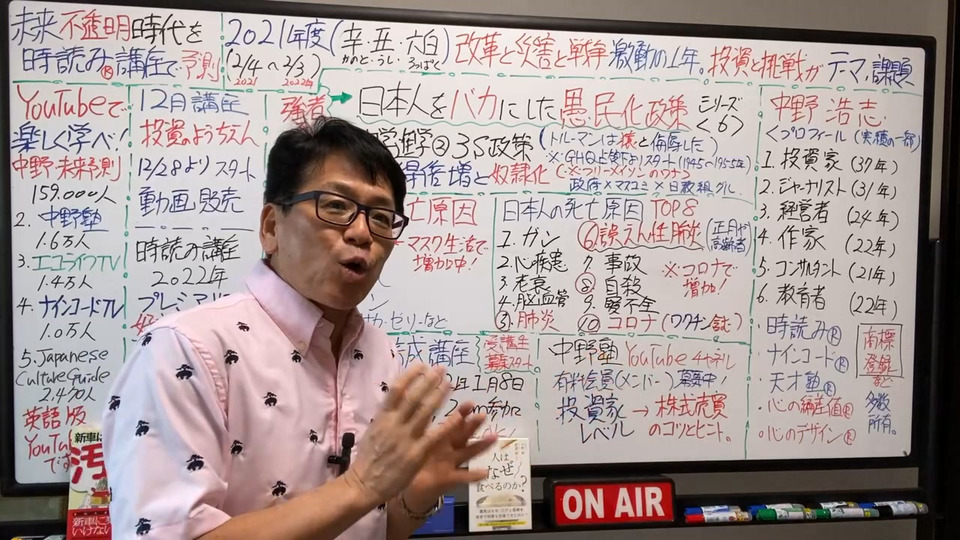 未来不透明時代を
時読み®講座で予測
2021年度(辛・丑・六白)
かのと・うし・ろっぱく
(2/4〜2/3)
2021 2022年
改革と災害と戦争激動の1年。投資と挑戦がテーマ、課題
YouTubeで
楽しく学べ!
中野未来予測
159.000人
2. 中野塾
1.6万人
3. エコライフTV
1.4万人
4. ナインコードTV
1.0万人
5. Japanese
Culture Guide
英語版
YouTube
12月講座
投資のようちえん
12/28よりスタート
動画販売
時読み講座
2022年
強者
日本人をバカにした愚民化政策 シリーズ
<6>
3S政策
(トルーマンは様と侮辱した)
※GHQ占領下よりスタート(1945〜1955年)
増と奴隷化
(※フリーメイソンのワナ)
政府×マスコミ×日教組グル
亡原因
←マスク生活で
増加中!
ゼリーなど
日本人の死亡原因 TOP8
1. ガン
2. 心疾患
3. 老衰
4. 脳血管
⑤. 肺炎
⑥誤えん性肺炎
正月や
高齢者
7. 事故
⑧ 自殺
9. 腎不全
⑩ コロナ(ワクチン含む)
※コロナで
増加!
成講座
受講生
募集スタート
年1月8日
参加
中野塾 YouTubeチャンネル
有料会員(メンバー)募集中!
投資家 → 株式売買
レベル のコツとヒント。
中野浩志
<プロフィール(実績の一部)
1. 投資家 (37年)
2. ジャーナリスト (31年)
3. 経営者 (24年)
4. 作家 (22年)
5. コンサルタント (21年)
6. 教育者 (22年)
・時読み®
・ナインコード®
・天才塾®
・心の偏差値®
・心のデザイン®
商標
登録
など
多数
所有。
新車に
汚
新車に
いけない
人は
なぜ
食べるのか?
ON AIR